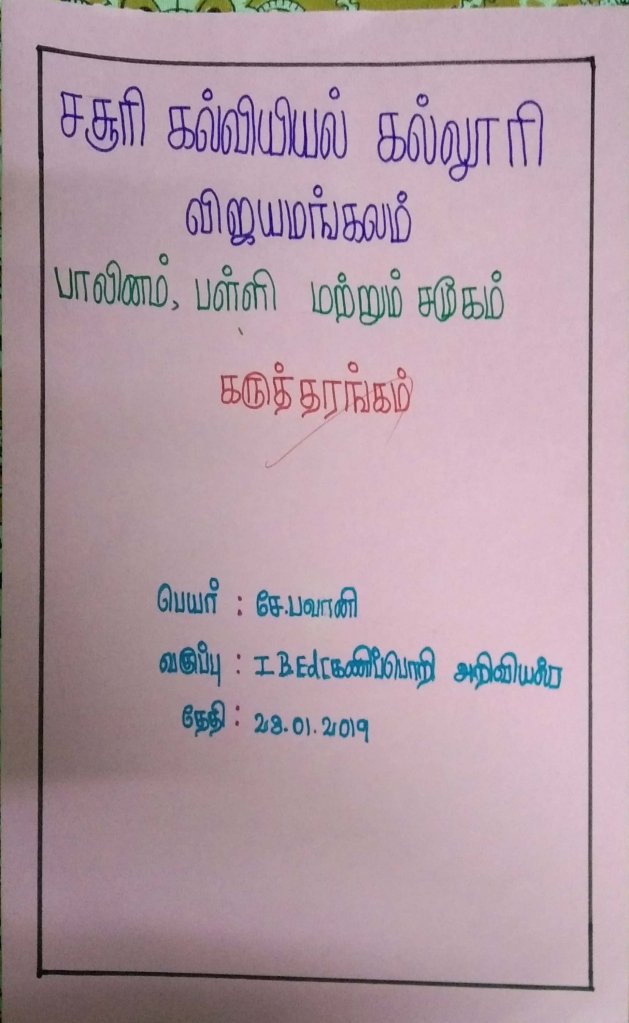 சசூரி கல்வியியல் கல்லூரி
விஜயமங்கலம்
பாலினம், பள்ளி மற்றும் சமூகம்
கருத்தரங்கம்
பெயர் : சே.பவானி
வகுப்பு : I B.Ed(கணிப்பொறி அறிவியல்)
தேதி : 23.01.2019